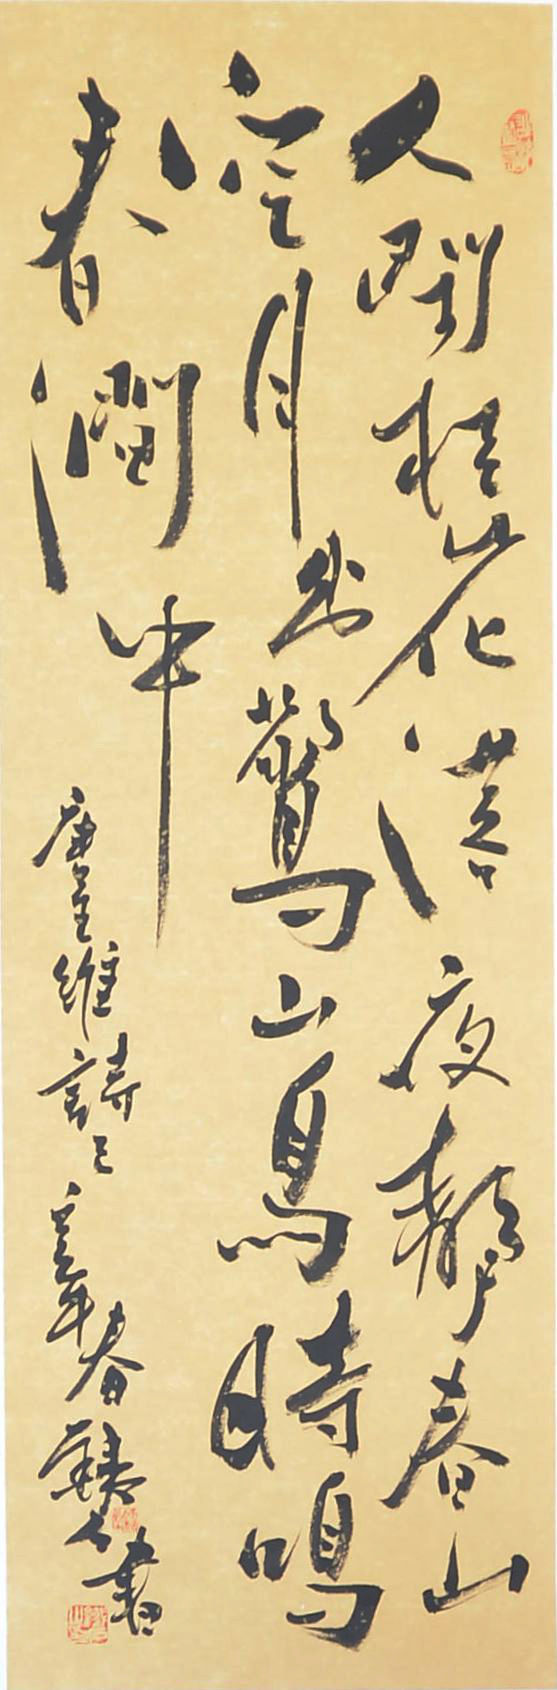 人閑桂花落夜静春山
空月出驚山鳥時鳴
春澗中
唐王維詩 春 書